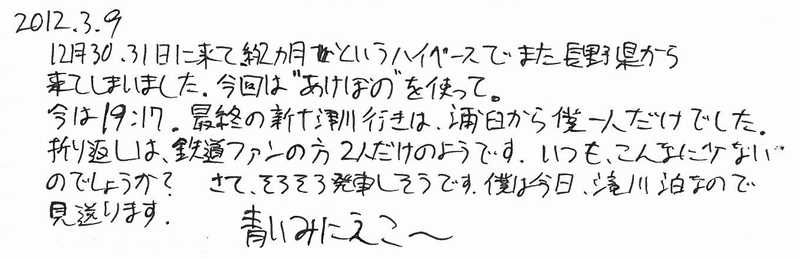 2012.3.9
12月30.31日に来て約2カ月というハイペースでまた長野県から
来てしまいました。今回は"あけぼの"を使って。
今は19:17。最終の新十津川行きは、浦臼から僕一人だけでした。
折り返しは、鉄道ファンの方2人だけのようです。いつも、こんなに少ない
のでしょうか? さて、そろそろ発車しそうです。僕は今日、滝川泊なので
見送ります。
青いみにえこ〜